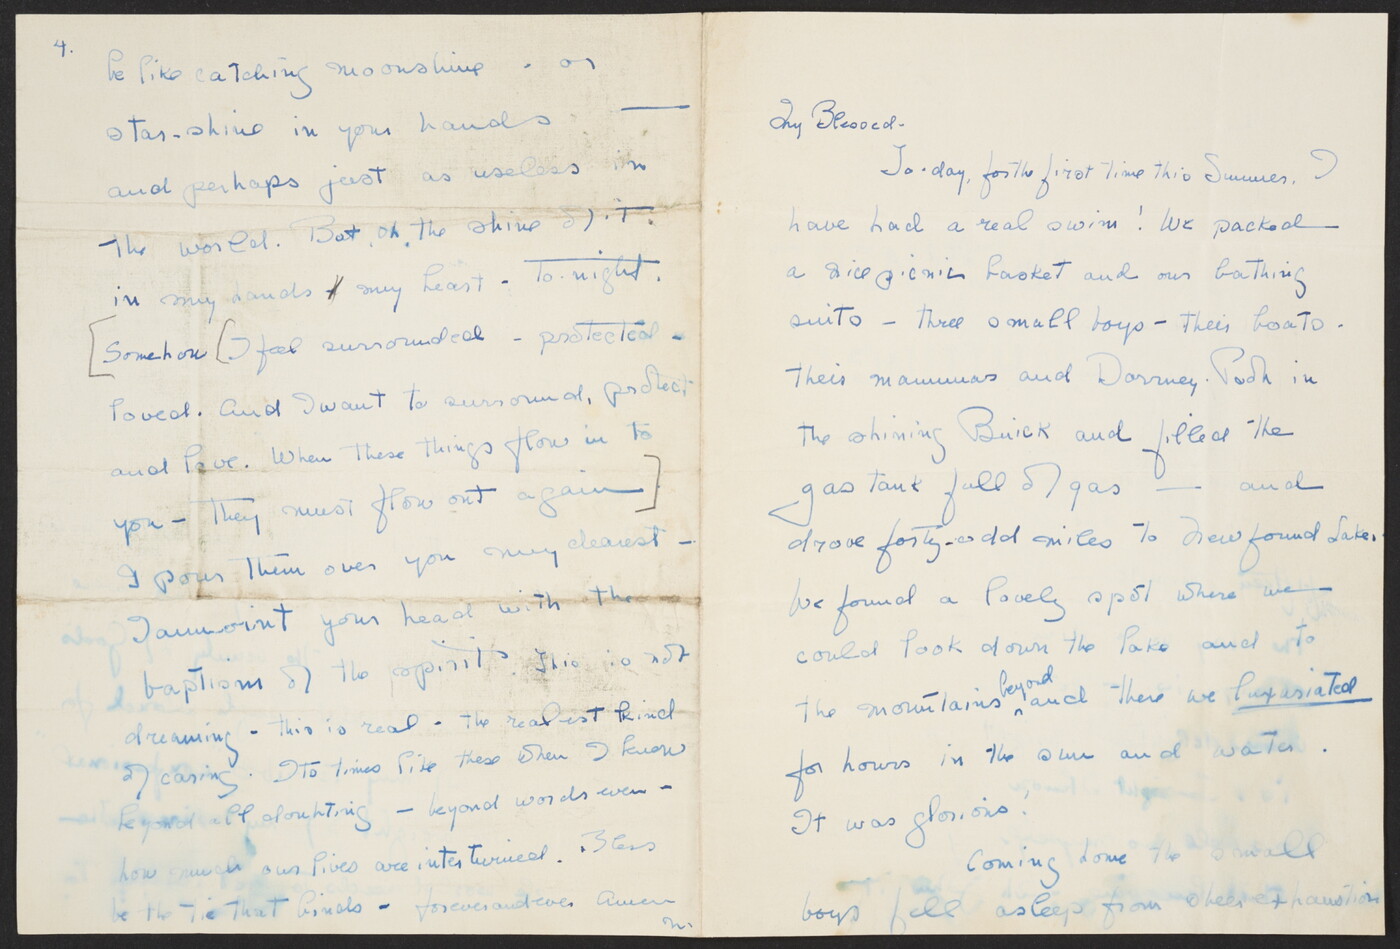 4.
be like catching moonshine - or
star-shine in your hands —
and perhaps just as useless in
the world. But, oh, the shine of it
in my hands & my heart - to-night.
[Somehow (I feel surrounded - protected -
loved. And I want to surround, protect
and love. When these things flow in to
you - they must flow out again]
I pour them over you my dearest -
I annoint your head with the
baptism of the spirit. This is not
dreaming - this is real - the realest kind
of caring. Its times like these when I know
beyond all doubting - beyond words even -
how much our lives are intertwined. Bless
be the tie that binds - foreverandever Amen
m.
My Blessed -
To-day, for the first time this Summer, I
have had a real swim! We packed
a nice picnic basket and our bathing
suits - three small boys - their boats -
their mammas and Dorrney. Pooh in
the shining Buick and filled the
gas tank full of gas — and
drove forty-odd miles to Newfound Lake.
We found a lovely spot where we
could look down the lake and to
the mountains beyond and there we luxuriated
for hours in the sun and water.
It was glorious!
Coming home the small
boys fell asleep from sheer exhaustion